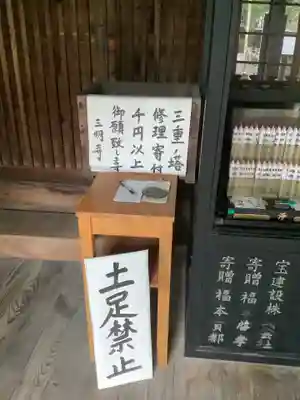 三重ノ塔
修理寄付
千円以上
御願致します
三明寺
土足禁止
宝建設株
寄贈 福
寄贈 福本